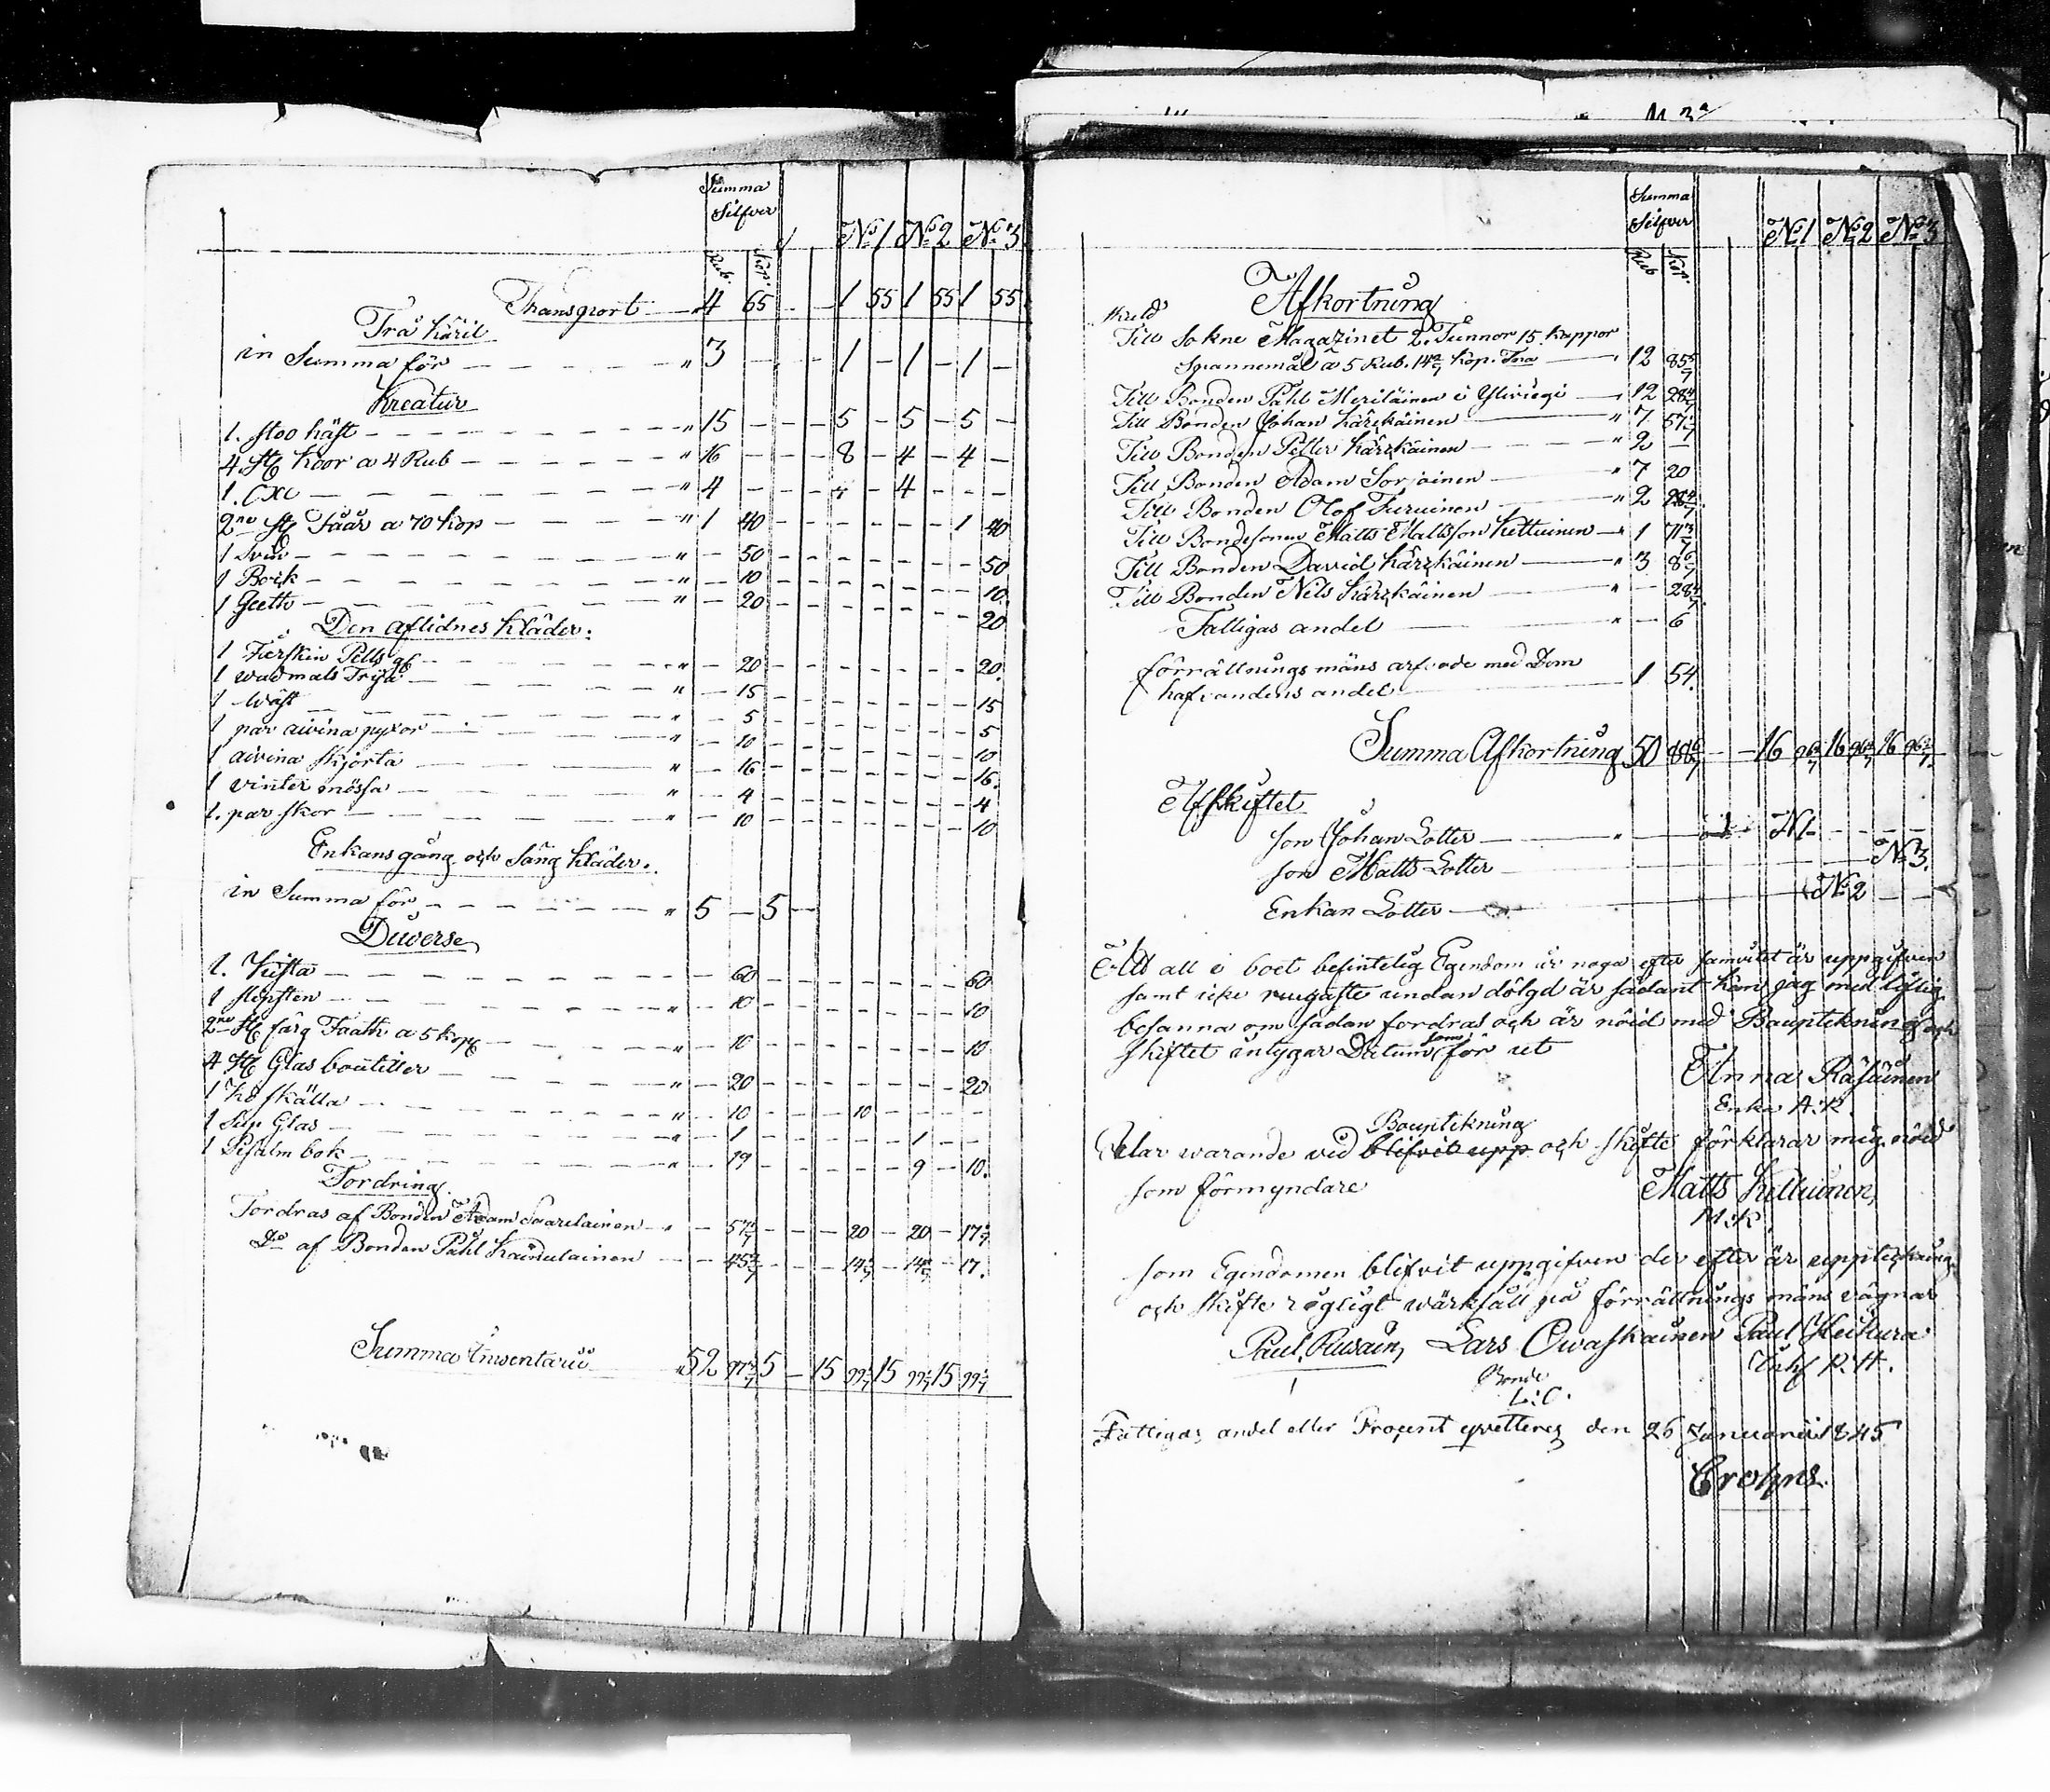 Summa
Silfver
Rub. Kop. No 1 No 2 No 3
Transport 4 65 1 55 1 55 1 55
Trä käril
in Summa för 3 1 1 1
Kreatur
1. stoo häst 15 5 5 5
4 st koor a 4 Rub 16 8 4 4
1. Oxe 4 4
2ne st Fåår a 70 kop 1 40 1 40
1 Svin 50 50
1 Bock 10 10
1 Geetth 20 20
Den aflidnes kläder.
1 Fårskin Pells 20 20
1 wadmals Tröja 15 15
1 wäst 5 5
1 par aivina pyxor 10 10
1 aivina skjorta 16 16
1 vinter mössa 4 4
1. par skor 10 10
Enkans gång och säng kläder.
in Summa för 5 5
Diverse
1. Kista 60 60
1 slipsten 10 10
2ne st färg Faath a 5 kop 10 10
4 st Glas boutiller 20 20
1 ko skälla 10 10
1 Sup Glas 1 1
1 Psalm bok 19 9 10
Fordring
Fordras af Bonden Adam Saarelainen 57 1/7 20 20 17 1/7
Do af Bonden Påhl Kainulainen 45 5/7 14 14 17
Summa Inventarii 52 97 5 15 99 15 99 15 99
Summa
Silfver
Rub Kop. No 1 No 2 No 3
Afkortning
skuld
Till Sokne Magazinet 2. Tunnor 15 kappor
Spannemål a 5 Rub. 14 2/7 kop. Tna 12 85 5/7
Till Bonden Påhl Meriläinen i Ylivieqi 12 28 4/7
Till Bonden Johan Kärzkäinen 7 57 1/7
Till Bonden Petter Kärzkäinen 2
Till Bonden Adam Sorjoinen 7 20
Till Bonden Olof Turuinen 2 28 4/7
Till Bondesonen Matts Mattsson Kettuinen 1 71 3/7
Till Bonden David Kärzkäinen 3 8 6/7
Till Bonden Nils Kärzkäinen 28 4/7
Fattigas andel 6
förrättnings mäns arfvode med Dom
hafvandens andel 1 54
Summa Afkortning 50 88 6/7 16 96 2/7 16 96 2/7 16 96 2/7
Afskiftet
son Johan Lotter No 1
son Matts Lotter No 3.
Enkan Lotter No 2
At all i boet befintelig Egendom är noga efter samvitet är uppgifven
samt icke ringaste undan dölgd är sådant kan jag med liflig
besanna om sådan fordras och är nöid med Bouptekning och
skiftet intygar Datum som för ut
Anna Räsäinen
Enka A:R.
Bouptekning
Delar warande vid blifvit upp och skifte förklarar mig nöid
som förmyndare
Matts Kettuinen,
M:K.
som Egendomen blifvit uppgifven der efter är upptekning
och skifte rögligt wärksält på förrättnings mäns vägnar
Paul Rusain, Lars Owaskainen Paul Heikura
Bonde
L:O.
P.H.
Fattigas andel eller Procent qvitteres den 26 Januarii 1845
Crohns.